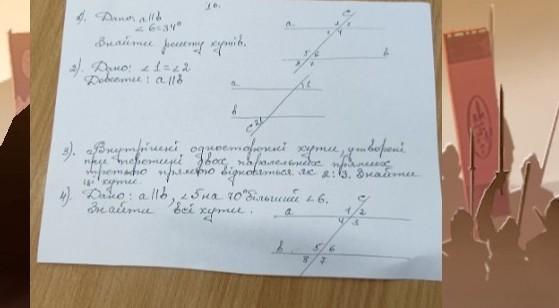 1). Дано: a||b
∠6=34°
Знайти решту кутів.
a
c
5 6
b
2). Дано: ∠1=∠2
Довести: a||b
a
1
b
c
2
3). Внутрішні односторонні кути, утворені
при перетині двох паралельних прямих
третьою прямою відносяться як 2:3. Знайти
ці кути.
4). Дано: a||b, ∠5 на 70° більший ∠6.
Знайти всі кути.
c
a
1 2
4 3
b
5 6
8 7